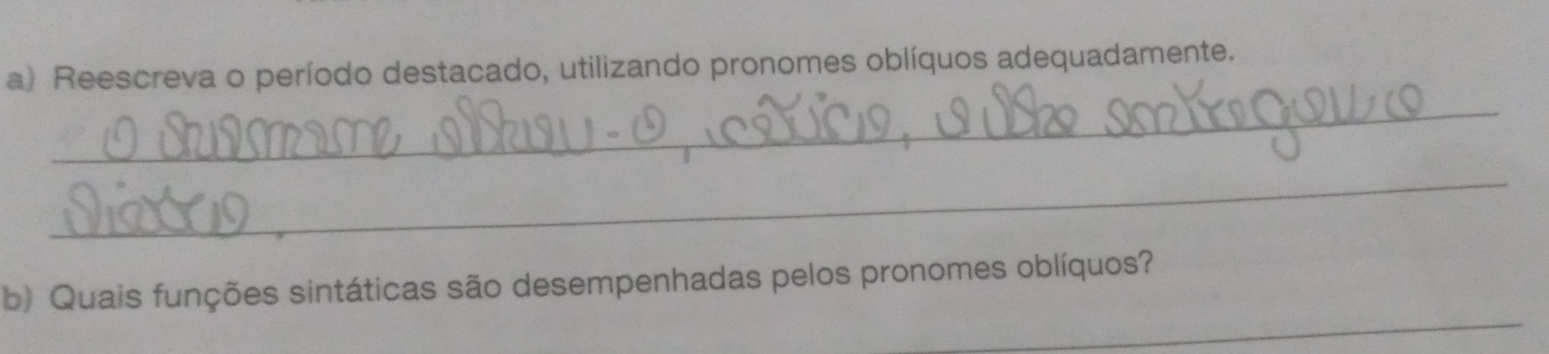 a) Reescreva o período destacado, utilizando pronomes oblíquos adequadamente.
O olhou-o, cético, e lhe entregou o
diário.
b) Quais funções sintáticas são desempenhadas pelos pronomes oblíquos?